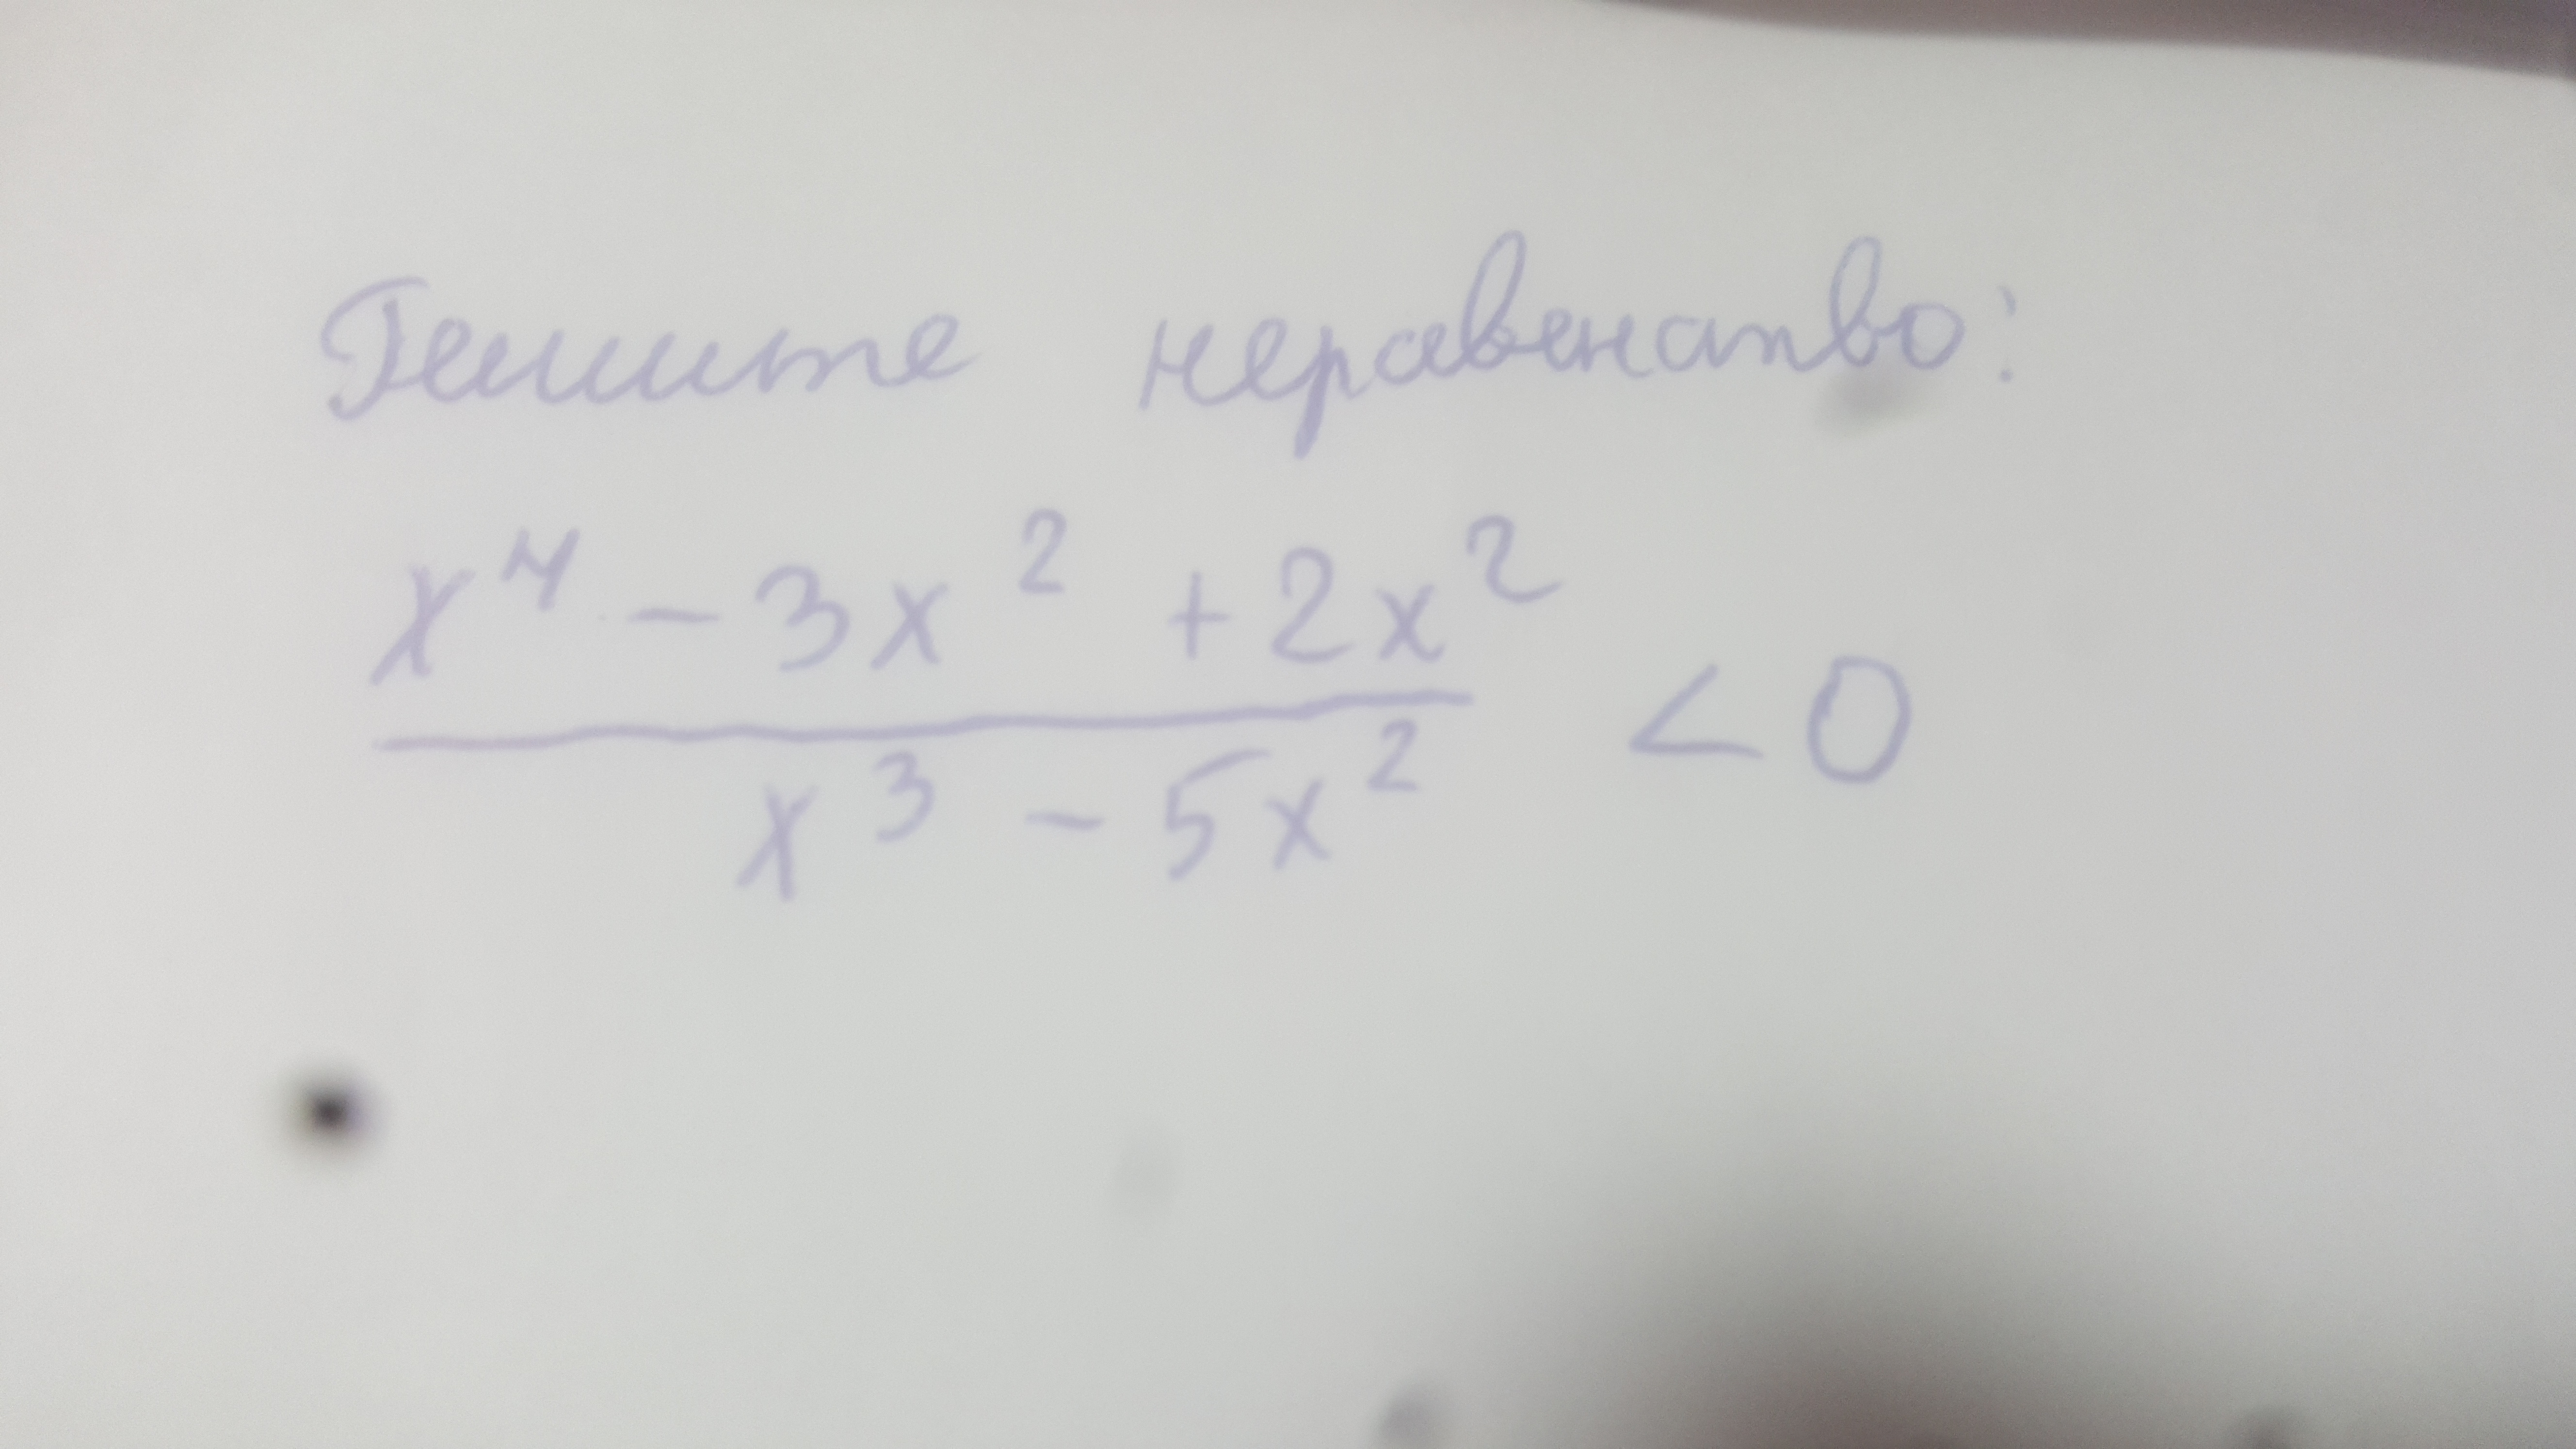 Решите неравенство:
x⁴ - 3x² + 2x²
x³ - 5x² < 0